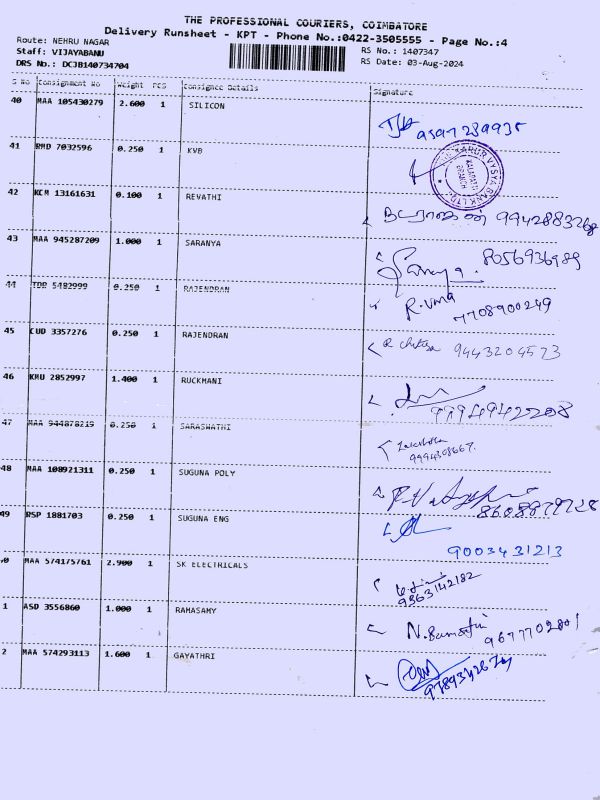 THE PROFESSIONAL COURIERS, COIMBATORE
Delivery Runsheet - KPT - Phone No.:0422-3505555 - Page No.:4
Route: NEHRU NAGAR
RS No.: 1407347
Staff: VIJAYABANU
RS Date: 03-Aug-2024
DRS No.: DCJB140734704
S No Consignment No Weight PCS Consignee Details Signature
40 MAA 105430279 2.600 1 SILICON
41 RMD 7032596 0.250 1 KVB
KARUR VYSYA BANK LTD.
42 KCM 13161631 0.100 1 REVATHI 9942883268
43 MAA 945287209 1.000 1 SARANYA Saranya. 8056936989
44 TDD 5482999 0.250 1 RAJENDRAN R.Uma 7708900249
45 CUD 3357276 0.250 1 RAJENDRAN 9443204573
46 KMU 2852997 1.400 1 RUCKMANI 9994942208
47 MAA 944878219 0.250 1 SARASWATHI 9994308667.
48 MAA 108921311 0.250 1 SUGUNA POLY 8608879728
49 RSP 1881703 0.250 1 SUGUNA ENG 9003431213
0 MAA 574175761 2.900 1 SK ELECTRICALS 9363142182
1 ASD 3556860 1.000 1 RAMASAMY 9677702801
2 MAA 574293113 1.600 1 GAYATHRI